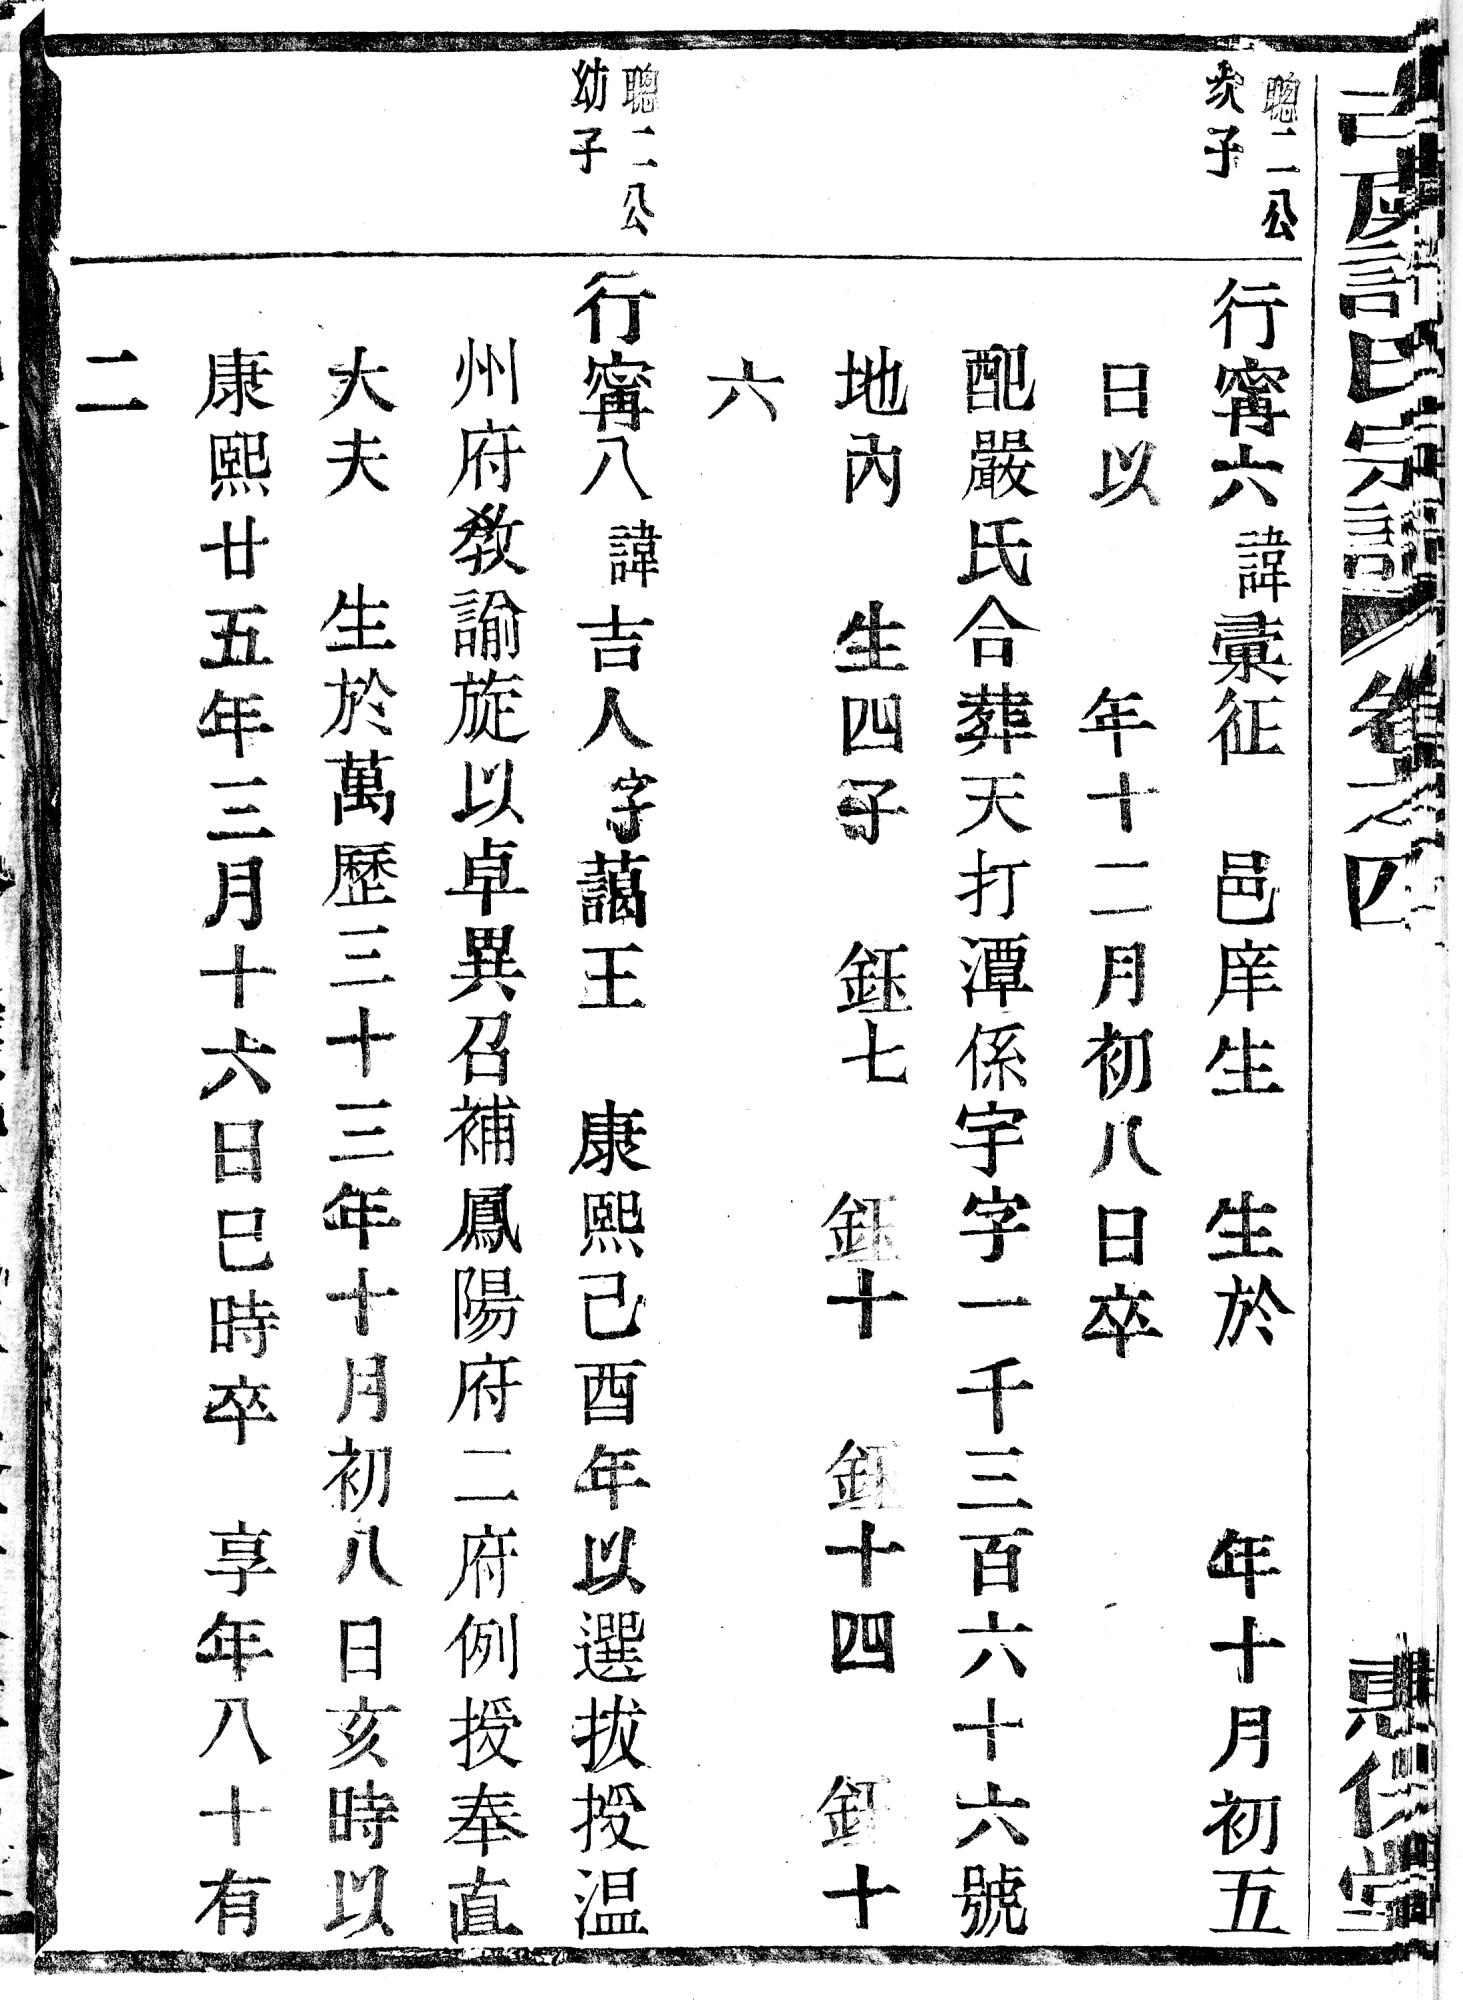 古虞許氏宗譜 卷之四
聰二公
次子
行甯六諱彙征 邑庠生 生於 年十月初五
日以 年十二月初八日卒
配嚴氏合葬天打潭係宇字一千三百六十六號
地內 生四子 鈺七 鈺十 鈺十四 鈺十
六
聰二公
幼子
行甯八諱吉人字藹王 康熙己酉年以選拔授温
州府教諭旋以卓異召補鳳陽府二府例授奉直
大夫 生於萬歷三十三年十月初八日亥時以
康熙廿五年三月十六日巳時卒 享年八十有
二